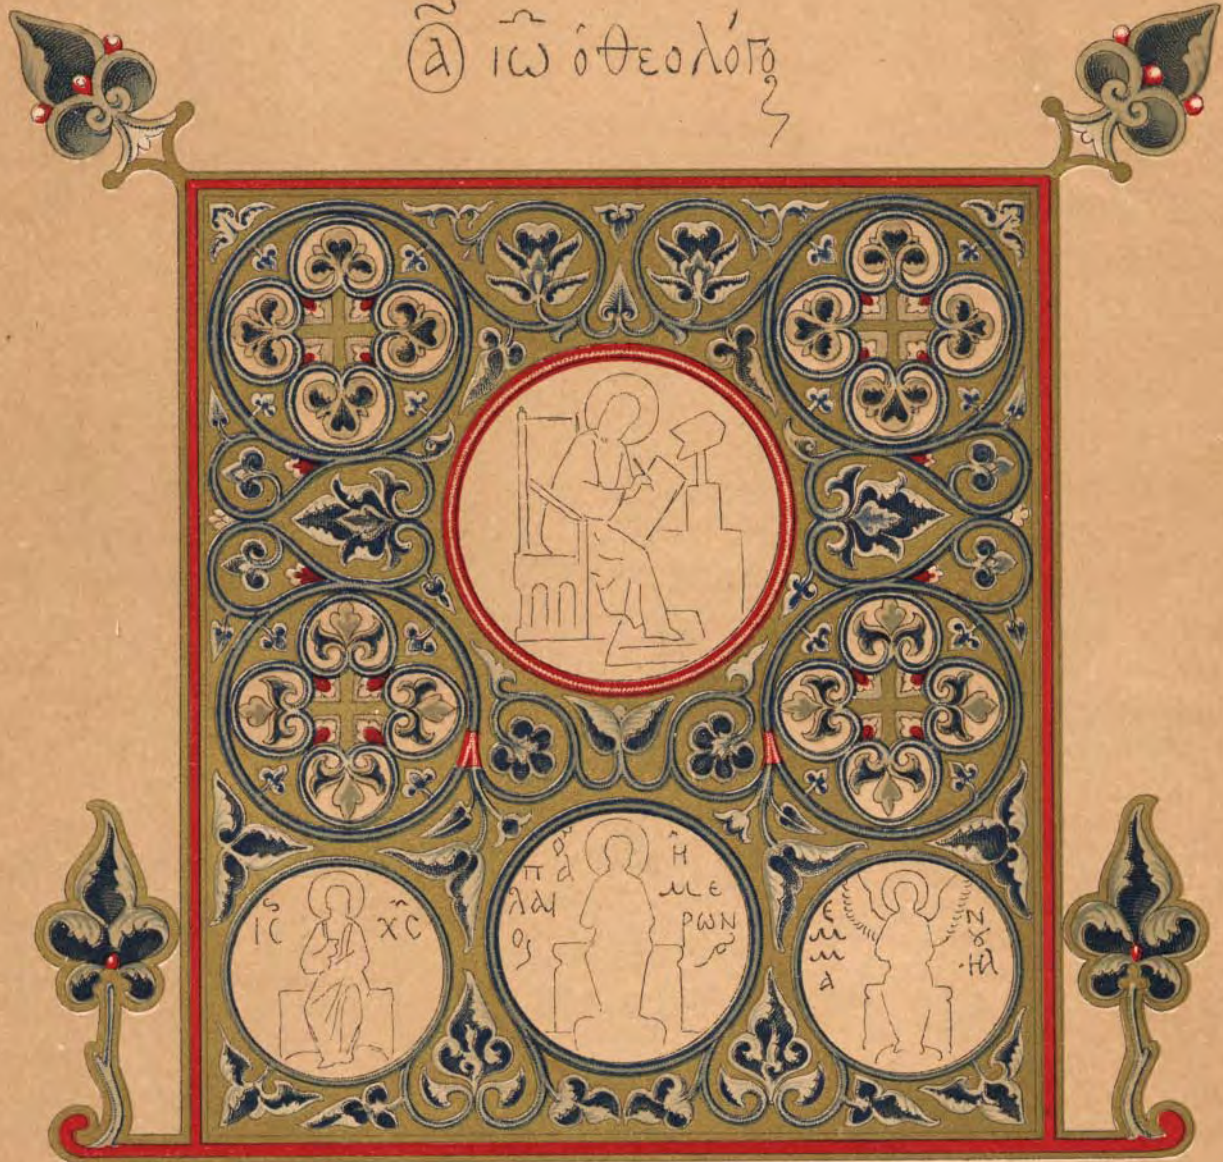 ⓐ̃ ιω̑ ὁ θεολόγος
ΙC ΧC
ὁ
πα
λαι
ος
Η
ΜΕ
ΡΩΝ
Ε
Μ
Μ
Α
Ν
Ȣ
ΗΛ